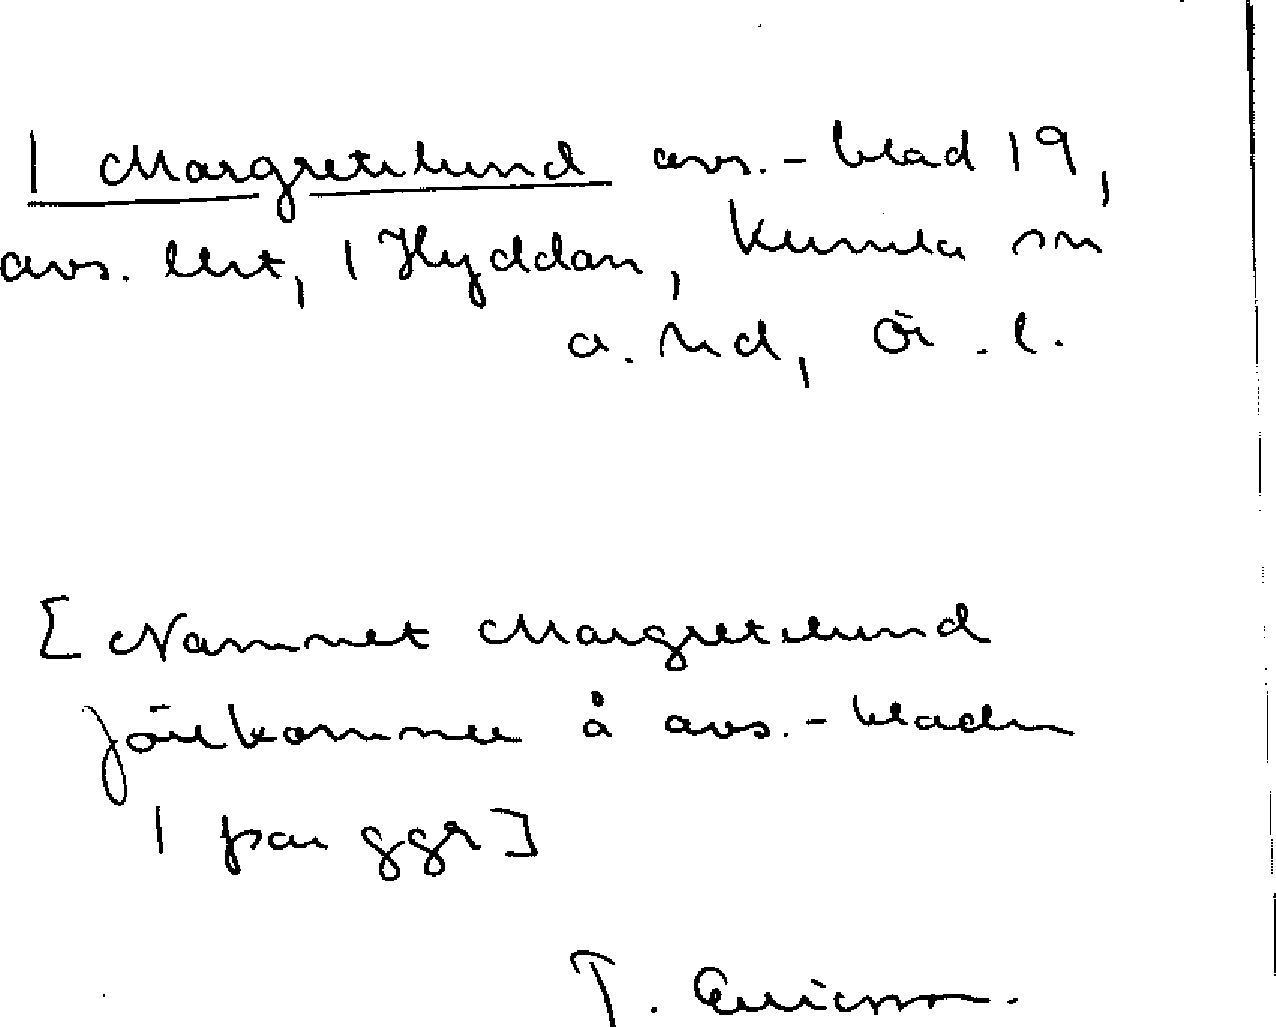 | Margretelund avs.-blad 19,
avs. lht, | Hyddan, Kumla sn
a. hd, Ör. l.
[ Namnet Margretelund
förekommer å avs.-bladen
| par ggr ]
T. Ericsson.